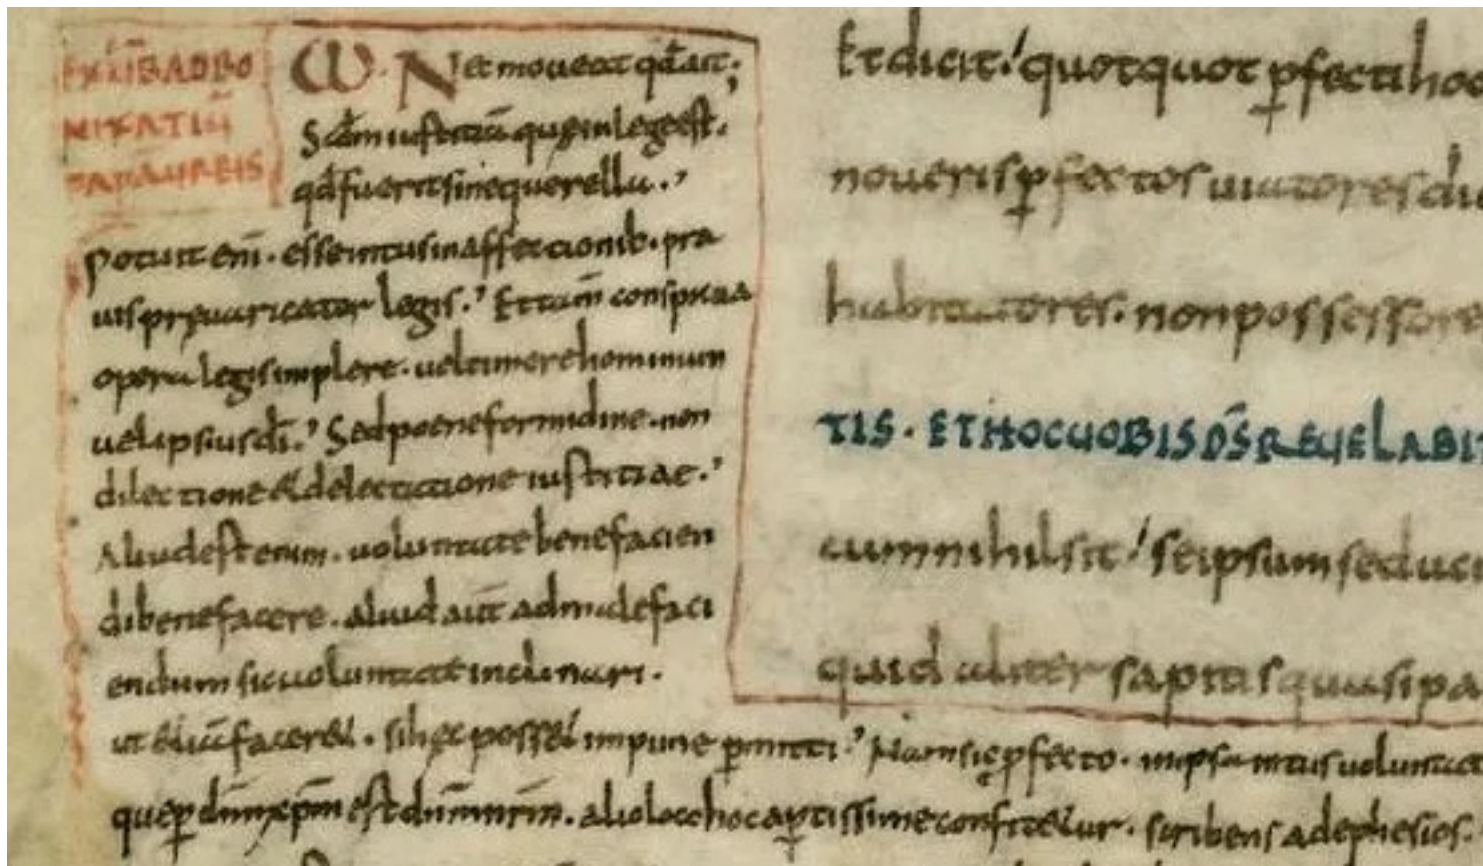 EX LIB AD BO
NIFATIŪ
PAPĀ URBIS
ω. Nec moueat qđ ait.
Scđm iustitiā quę in lege est.
qđ fuerit sine querella.
potuit eni. esse intus in affectionib. pra
uis pręuaricator legis. Et tam̄ conspicua
opera legis implere. uel timore hominum
uel ipsius dī. Sed poene formidine. non
dilectione et delectatione iustitiae.
Aliud est enim. uoluntate benefacien
di benefacere. aliud aūt ad malefaci
endum sic uoluntate inclinari.
ut etiā faceret. si hęc posset impune pmitti. Nam sic pfecto. in ipsa intus uoluntat
que p dnm xpm est dnm nrm. alio loco hoc aptissime confitetur. scribens ad ephesios.
Et dicit. quotquot pfecti hoc
noueris pfectos uiatores
habitatores. non possessore
TIS. ET HOC UOBIS DS REUELABIT
cum nihil sit. se ipsum seduc
quid aliter sapitis quasi pa